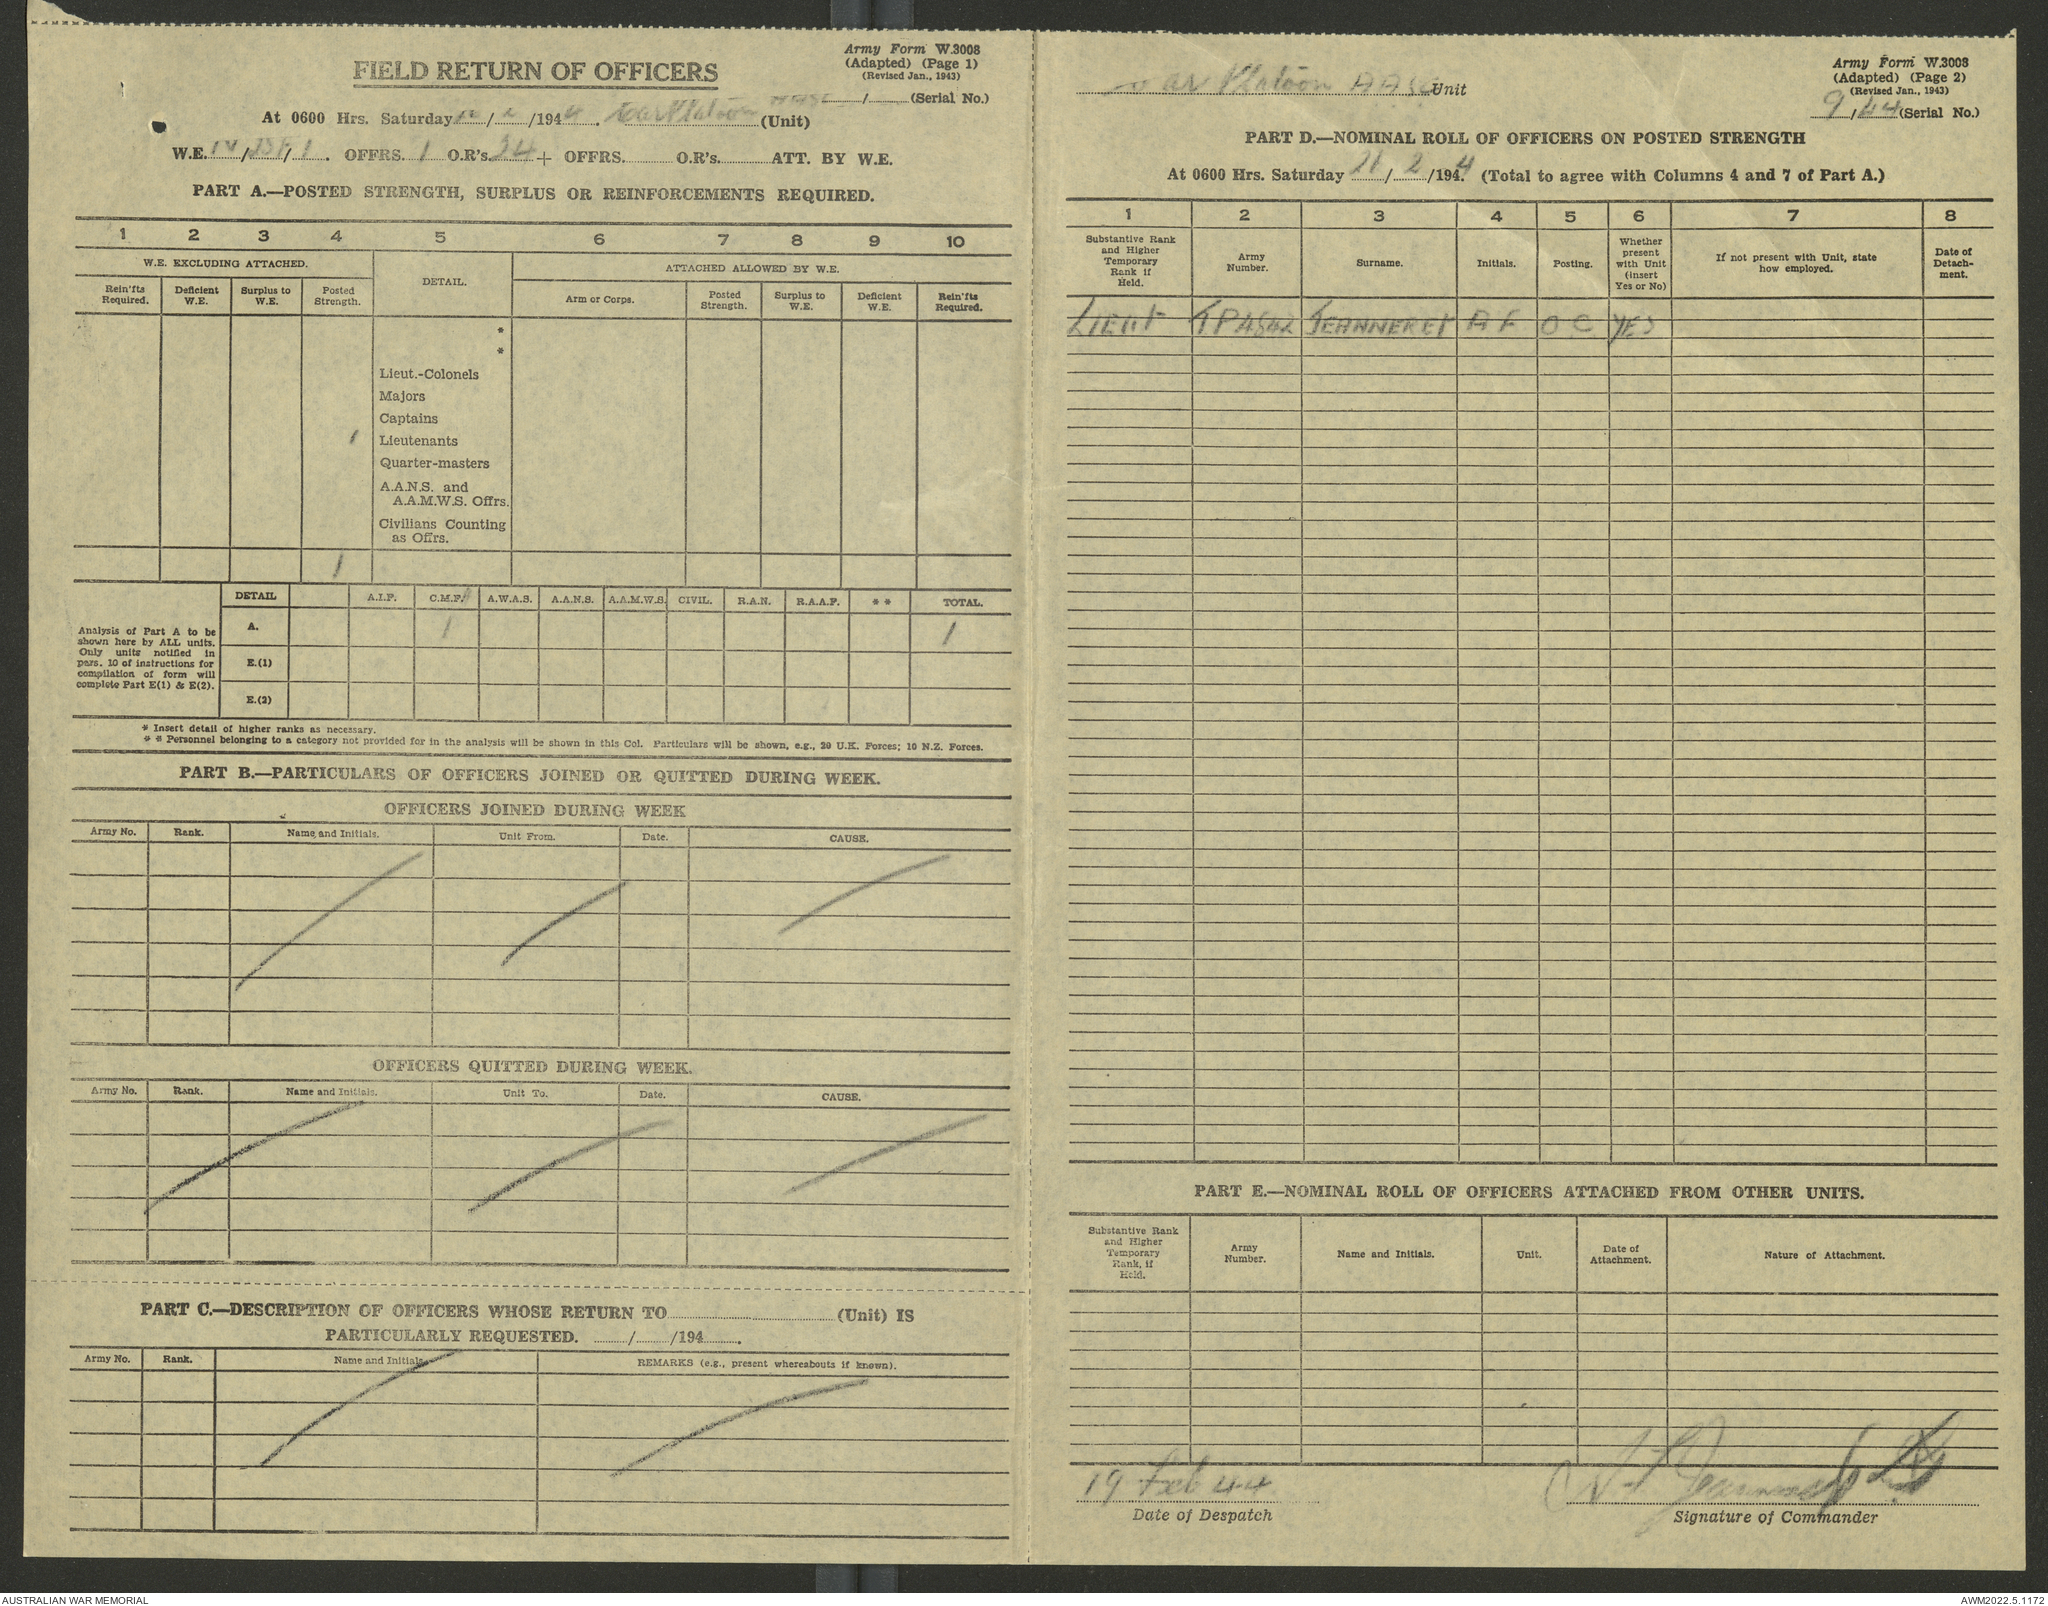 Army Form W.3008
(Adapted) (Page 1)
(Revised Jan., 1943)
FIELD RETURN OF OFFICERS
/ (Serial No.)
At 0600 Hrs. Saturday / /1944. Car Platoon AASC (Unit)
W.E. IV / / 1. OFFRS. 1 O.R's. 34 + OFFRS. O.R's. ATT. BY W.E.
PART A.—POSTED STRENGTH, SURPLUS OR REINFORCEMENTS REQUIRED.
1 2 3 4 5 6 7 8 9 10
W.E. EXCLUDING ATTACHED. DETAIL. ATTACHED ALLOWED BY W.E.
Rein'fts Required. Deficient W.E. Surplus to W.E. Posted Strength. Arm or Corps. Posted Strength. Surplus to W.E. Deficient W.E. Rein'fts Required.
*
*
Lieut.-Colonels
Majors
Captains
1 Lieutenants
Quarter-masters
A.A.N.S. and
A.A.M.W.S. Offrs.
Civilians Counting
as Offrs.
1
DETAIL A.I.F. C.M.F. A.W.A.S. A.A.N.S. A.A.M.W.S. CIVIL. R.A.N. R.A.A.F. * * TOTAL.
Analysis of Part A to be
shown here by ALL units.
Only units notified in
para. 10 of instructions for
compilation of form will
complete Part E(1) & E(2).
A. 1 1
E.(1)
E.(2)
* Insert detail of higher ranks as necessary.
* * Personnel belonging to a category not provided for in the analysis will be shown in this Col. Particulars will be shown, e.g., 20 U.K. Forces; 10 N.Z. Forces.
PART B.—PARTICULARS OF OFFICERS JOINED OR QUITTED DURING WEEK.
OFFICERS JOINED DURING WEEK
Army No. Rank. Name and Initials. Unit From. Date. CAUSE.
OFFICERS QUITTED DURING WEEK.
Army No. Rank. Name and Initials. Unit To. Date. CAUSE.
PART C.—DESCRIPTION OF OFFICERS WHOSE RETURN TO (Unit) IS
PARTICULARLY REQUESTED. / /194 .
Army No. Rank. Name and Initials. REMARKS (e.g., present whereabouts if known).
Army Form W.3008
(Adapted) (Page 2)
(Revised Jan., 1943)
Car Platoon AASC Unit
9/44 (Serial No.)
PART D.—NOMINAL ROLL OF OFFICERS ON POSTED STRENGTH
At 0600 Hrs. Saturday / 2 /1944. (Total to agree with Columns 4 and 7 of Part A.)
1 2 3 4 5 6 7 8
Substantive Rank and Higher Temporary Rank if Held. Army Number. Surname. Initials. Posting. Whether present with Unit (insert Yes or No) If not present with Unit, state how employed. Date of Detach- ment.
LIEUT TP4842 JEANNERET A F OC YES
PART E.—NOMINAL ROLL OF OFFICERS ATTACHED FROM OTHER UNITS.
Substantive Rank and Higher Temporary Rank, if Held. Army Number. Name and Initials. Unit. Date of Attachment. Nature of Attachment.
19 Feb 44
Date of Despatch
Signature of Commander
AUSTRALIAN WAR MEMORIAL
AWM2022.5.1172